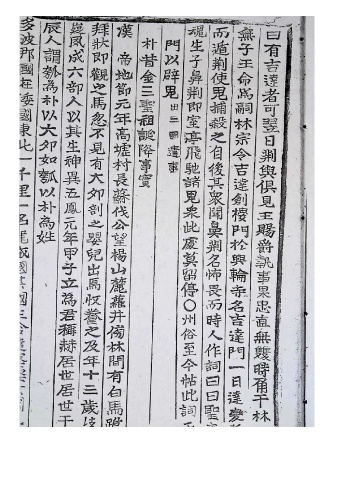 曰有吉達者可翌日荆與俱見王賜爵執事果忠直無雙時角干林
無子王命爲嗣林宗令吉達創樓門於興輪寺名吉達門一日達變
而遁荆使鬼捕殺之自後其衆聞鼻荆名怖畏而時人作詞曰聖
魂生子鼻荆郎室亭飛馳諸鬼衆此處莫留停○州俗至今帖此詞
門以辟鬼 遺事
朴昔金三聖祖誕降事實
漢 帝地節元年高墟村長蘇伐公望楊山麓蘿井傍林間有白馬跪
拜狀即觀之馬忽不見有大卵剖之嬰兒出焉收養之及年十三歲
嶷夙成六部人以其生神異五鳳元年甲子立爲君稱赫居世居世干
辰人謂瓠爲朴以大卵如瓠以朴爲姓
多婆那國在倭國東北一千里一名龍城國其國王